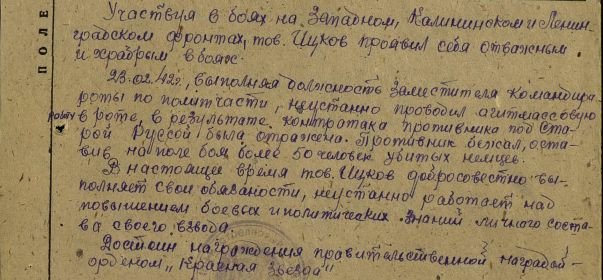 Участвуя в боях на Западном, Калининском и Ленин-
градском фронтах, тов. Щуков проявил себя отважным
и храбрым в боях.
23.02.42г., выполняя должность заместителя командира
роты по политчасти, неустанно проводил агитмассовую
работу в роте, в результате контратака противника под Ста-
рой Руссой была отражена. Противник бежал, оста-
вив на поле боя более 50 человек убитых немцев.
В настоящее время тов. Щуков добросовестно вы-
полняет свои обязаности, неустанно работает над
повышением боевых и политических знаний личного соста-
ва своего взвода.
Достоин награждения правительственной наградой -
орденом „Красная звезда"
ПОЛЕ